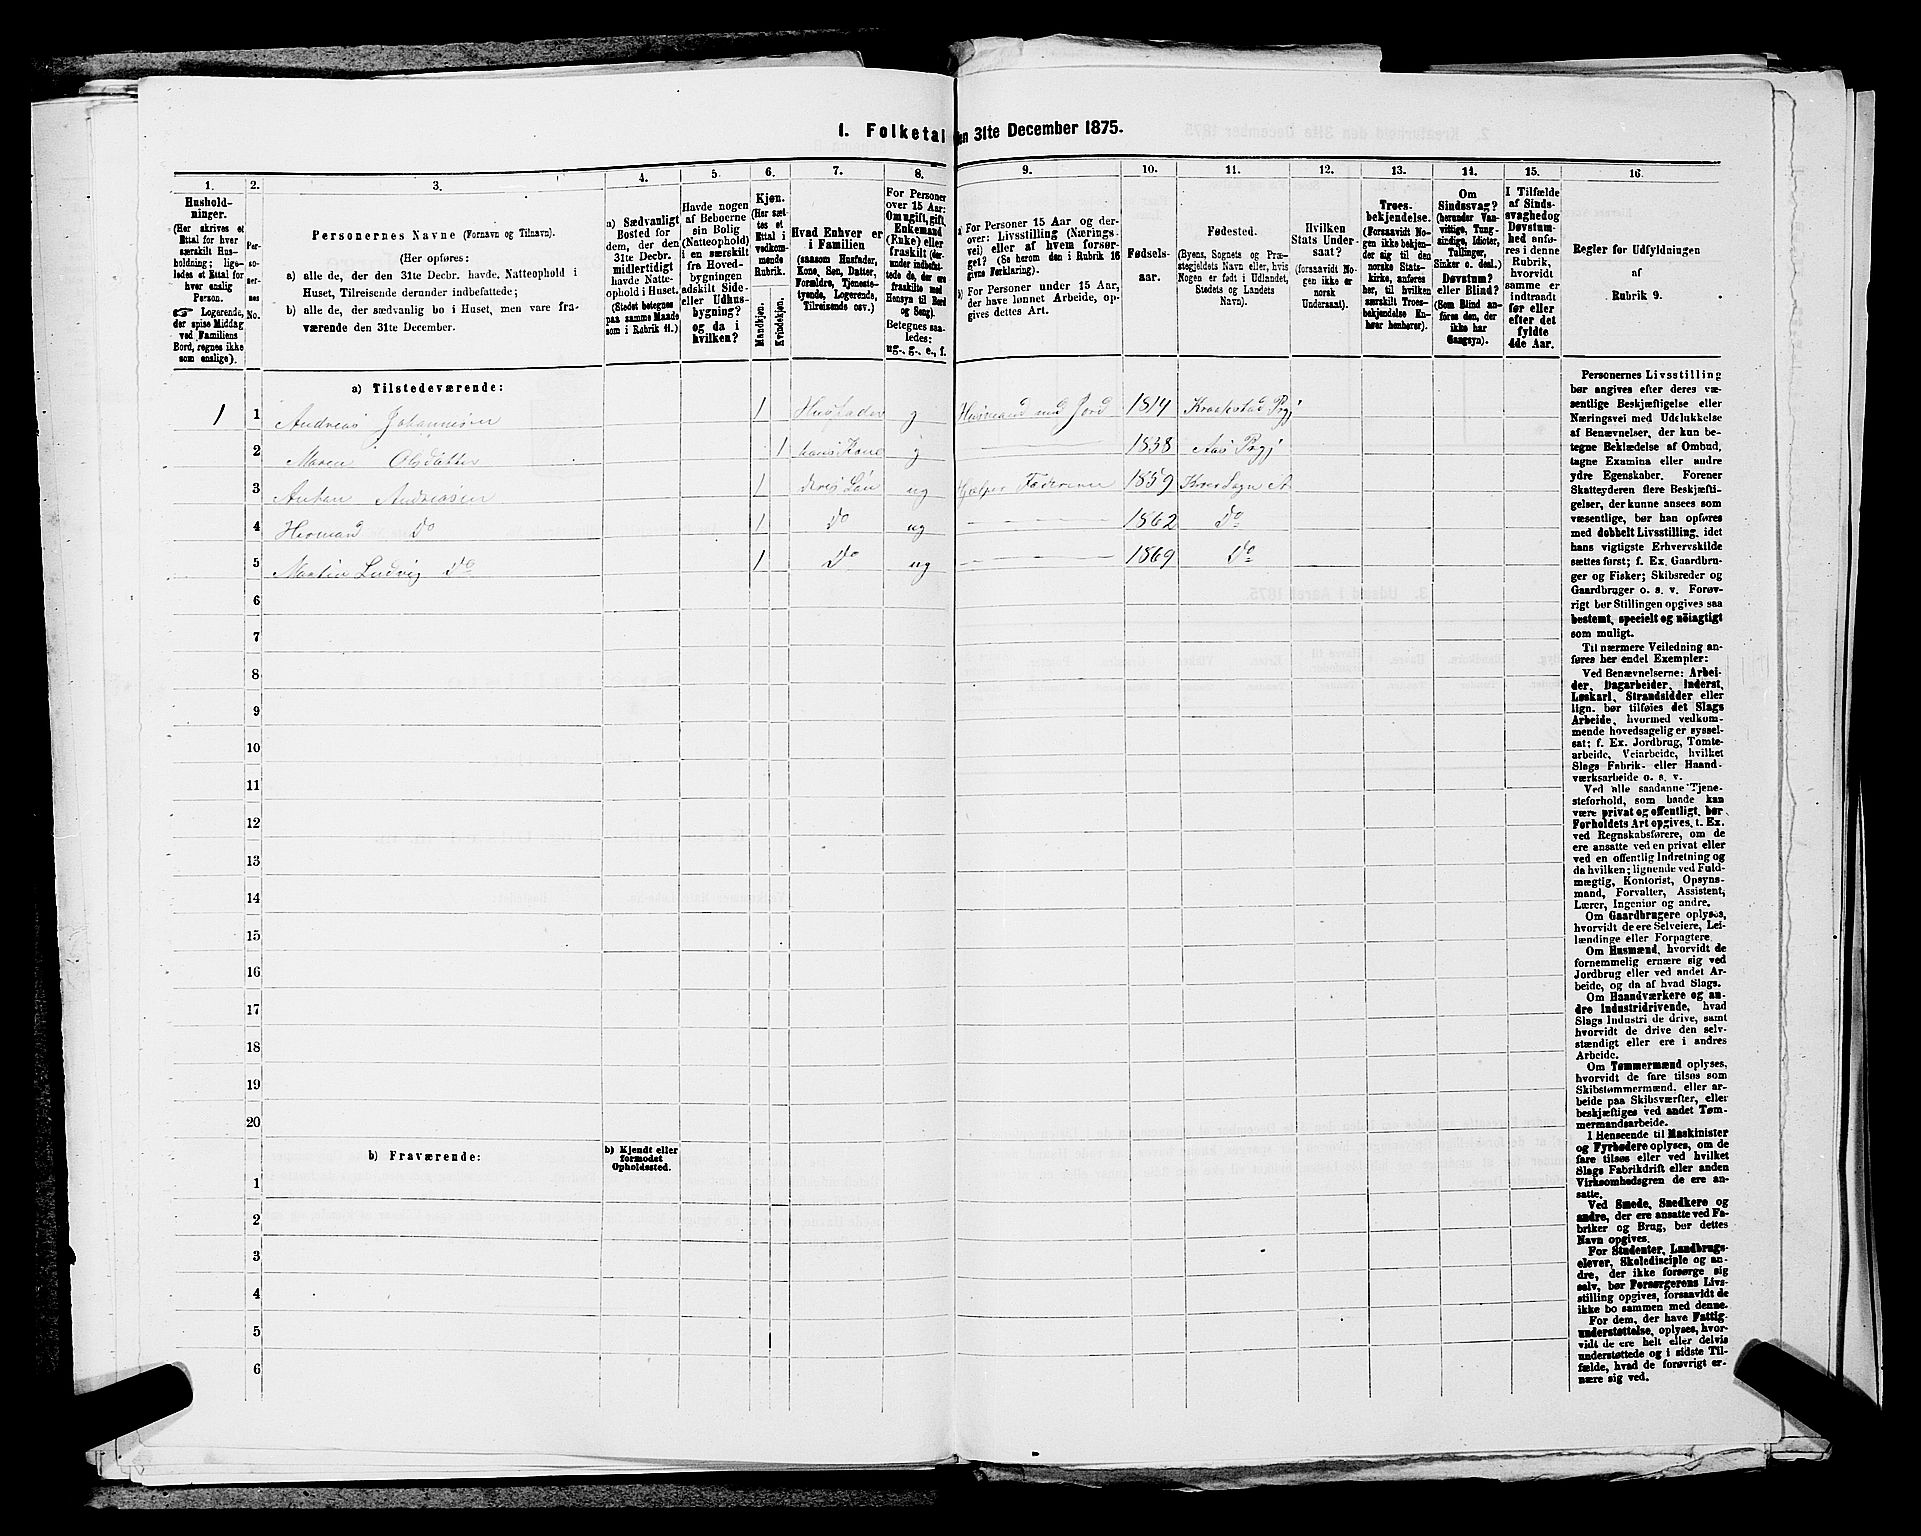 1. Folketal den 31te December 1875.
1. 2. 3. 4. 5. 6. 7. 8. 9. 10. 11. 12. 13. 14. 15. 16.
Husholdninger.
(Her skrives et
Ettal for hver
særskilt Husholdning;
ligeledes
et Ettal for
hver enslig
Person.
☞ Logerende,
der spise Middag
ved Familiens
Bord, regnes ikke
som enslige).
Personernes
No.
Personernes Navne (Fornavn og Tilnavn).
(Her opføres:
a) alle de, der den 31te Decbr. havde, Natteophold i
Huset, Tilreisende derunder indbefattede;
b) alle de, der sædvanlig bo i Huset, men vare fraværende
den 31te December.
a) Sædvanligt
Bosted for
dem, der den
31te Decbr.
midlertidigt
havde Natteophold
i Huset.
(Stedet betegnes
paa samme Maade
som i Rubrik 11.)
Havde nogen
af Beboerne
sin Bolig
(Natteophold)
i en særskilt
fra Hovedbygningen
adskilt Side-
eller Udhusbygning?
og da i
hvilken?
Kjøn.
(Her sættes
et
Ettal i
vedkommende
Rubrik.
Mandkjøn.
Kvindekjøn.
Hvad Enhver er
i Familien
(saasom Husfader,
Kone, Søn, Datter,
Forældre, Tjenestetyende,
Logerende,
Tilreisende osv.)
For Personer
over 15 Aar:
Om ugift, gift,
Enkemand
(Enke) eller
fraskilt (derunder
indbefattede
de, der ere
fraskilte med
Hensyn til Bord
og Seng).
Betegnes saaledes:
ug-, g-, e-, f.
a) For Personer 15 Aar og derover:
Livsstilling (Næringsvei)
eller af hvem forsørget?
(Se herom den i Rubrik 16
givne Forklaring).
b) For Personer under 15 Aar,
der have lønnet Arbeide, opgives
dettes Art.
Fødselsaar.
Fødested.
(Byens, Sognets og Præstegjeldets
Navn eller, hvis
Nogen er født i Udlandet,
Stedets og Landets
Navn).
Hvilken
Stats Undersaat?
(forsaavidt Nogen
ikke er
norsk
Undersaat).
Troesbekjendelse.
(Forsaavidt Nogen
ikke bekjender
sig til den
norske Statskirke,
anføres
her, til hvilken
særskilt Troesbekjendelse
Enhver
henhører).
Om
Sindssvag?
(herunder Vanvittige,
Tungsindige,
Idioter,
Tullinger,
Sinker o. desl.)
Døvstum?
eller Blind?
(Som Blind anføres
den, der
ikke har
Gangsyn).
I Tilfælde
af Sindssvaghed
og
Døvstumhed
anføres
i denne
Rubrik,
hvorvidt
samme er
indtraadt
før eller
efter det
fyldte
4de Aar.
Regler for Udfyldningen
af
Rubrik 9.
a) Tilstedeværende:
1 1 Andreas Johannesen 1 Husfader g Husmand med Jord 1814 Kraakstad Prgj
2 Maren Olsdatter 1 hans Kone g — 1838 Aas Prgj
3 Anton Andreasen 1 deres Søn ug Hjelper Faderen 1859 Kroer Sogn A
4 Herman Do 1 Do ug — 1862 Do
5 Martin Ludvig Do 1 Do ug — 1869 Do
6
7
8
9
10
11
12
13
14
15
16
17
18
19
20
b) Fraværende:
b) Kjendt eller
formodet
Opholdssted.
1
2
3
4
5
6
Personernes Livsstilling
bør angives efter deres væsentlige
Beskjæftigelse eller
Næringsvei med Udelukkelse
af Benævnelser, der kun betegne
Beklædelse af Ombud,
tagne Examina eller andre
ydre Egenskaber. Forener
Skatteyderen flere Beskjæftigelser,
der kunne ansees som
væsentlige, bør han opføres
med dobbelt Livsstilling, idet
hans vigtigste Erhvervskilde
sættes først; f. Ex. Gaardbruger
og Fisker; Skibsreder og
Gaardbruger o. s. v. Forøvrigt
bør Stillingen opgives saa
bestemt, specielt og nöiagtigt
som muligt.
Til nærmere Veiledning anføres
her endel Exempler:
Ved Benævnelserne: Arbeider,
Dagarbeider, Inderst,
Løskarl, Strandsidder eller
lign. bør tilføies det Slags
Arbeide, hvormed vedkommende
hovedsagelig er sysselsat;
f. Ex. Jordbrug, Tomtearbeide,
Veiarbeide, hvilket
Slags Fabrik- eller Haandværksarbeide
o. s. v.
Ved alle saadanne Tjenesteforhold,
som baade kan
være privat og offentligt, bør
Forholdets Art opgives, t. Ex.
ved Regnskabsførere, om de
ere ansatte ved en privat eller
ved en offentlig Indretning og
da hvilken; lignende ved Fuldmægtig,
Kontorist, Opsynsmand,
Forvalter, Assistent,
Lærer, Ingeniør og andre.
Om Gaardbrugere oplyses,
hvorvidt de ere Selveiere, Leilændinge
eller Forpagtere.
Om Husmænd, hvorvidt de
fornemmelig ernære sig ved
Jordbrug eller ved andet Arbeide,
og da af hvad Slags.
Om Haandværkere og andre
Industridrivende, hvad
Slags Industri de drive, samt
hvorvidt de drive den selvstændigt
eller ere i andres
Arbeide.
Om Tømmermænd oplyses,
hvorvidt de fare tilsøs som
Skibstømmermænd, eller arbeide
paa Skibsværfter, eller
beskjæftiges ved andet Tømmermandsarbeide.
I Henseende til Maskinister
og Fyrbødere oplyses, om de
fare tilsøs eller ved hvilket
Slags Fabrikdrift eller anden
Virksomhedsgren de ere ansatte.
Ved Smede, Snedkere og
andre, der ere ansatte ved Fabriker
og Brug, bør dettes
Navn opgives.
For Studenter, Landbrugselever,
Skoledisciple og andre,
der ikke forsørge sig
selv, bør Forsørgerens Livsstilling
opgives, forsaavidt de
ikke bo sammen med denne.
For dem, der have Fattigunderstøttelse,
oplyses, hvorvidt
de ere helt eller delvis
understøttede og i sidste Tilfælde,
hvad de forøvrigt ernære
sig ved.